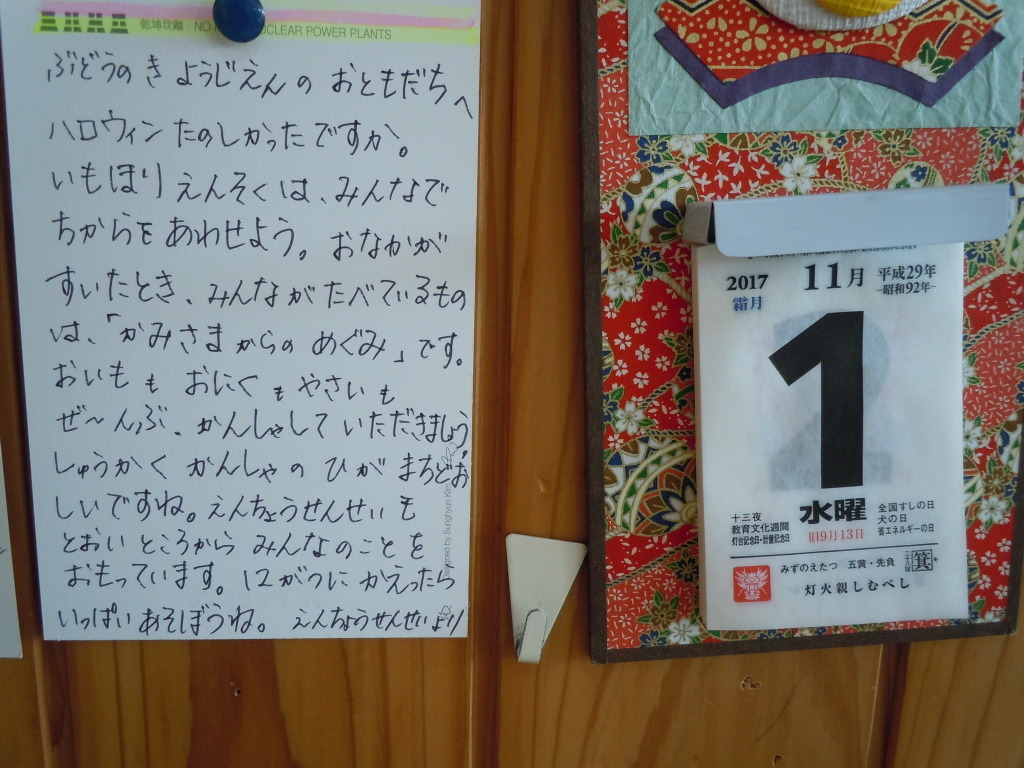 乾坤坎離・NO NUCLEAR POWER PLANTS
ぶどうのきようじえんの おともだちへ
ハロウィン たのしかったですか。
いもほり えんそくは、みんなで
ちからを あわせよう。おなかが
すいたとき、みんなが たべているもの
は、「かみさまからの めぐみ」です。
おいもも おにくも やさいも
ぜ〜んぶ、かんしゃして いただきましょう。
しゅうかく かんしゃの ひが まちどお
しいですね。えんちょうせんせいも
とおい ところから みんなのことを
おもっています。12がつに かえったら
いっぱい あそぼうね。 えんちょうせんせいより
2017
11月
平成29年
-昭和92年-
霜月
1
水曜
旧9月13日
十三夜
教育文化週間
灯台記念日・計量記念日
全国すしの日
犬の日
省エネルギーの日
みずのえたつ 五黄・先負
箕
灯火親しむべし